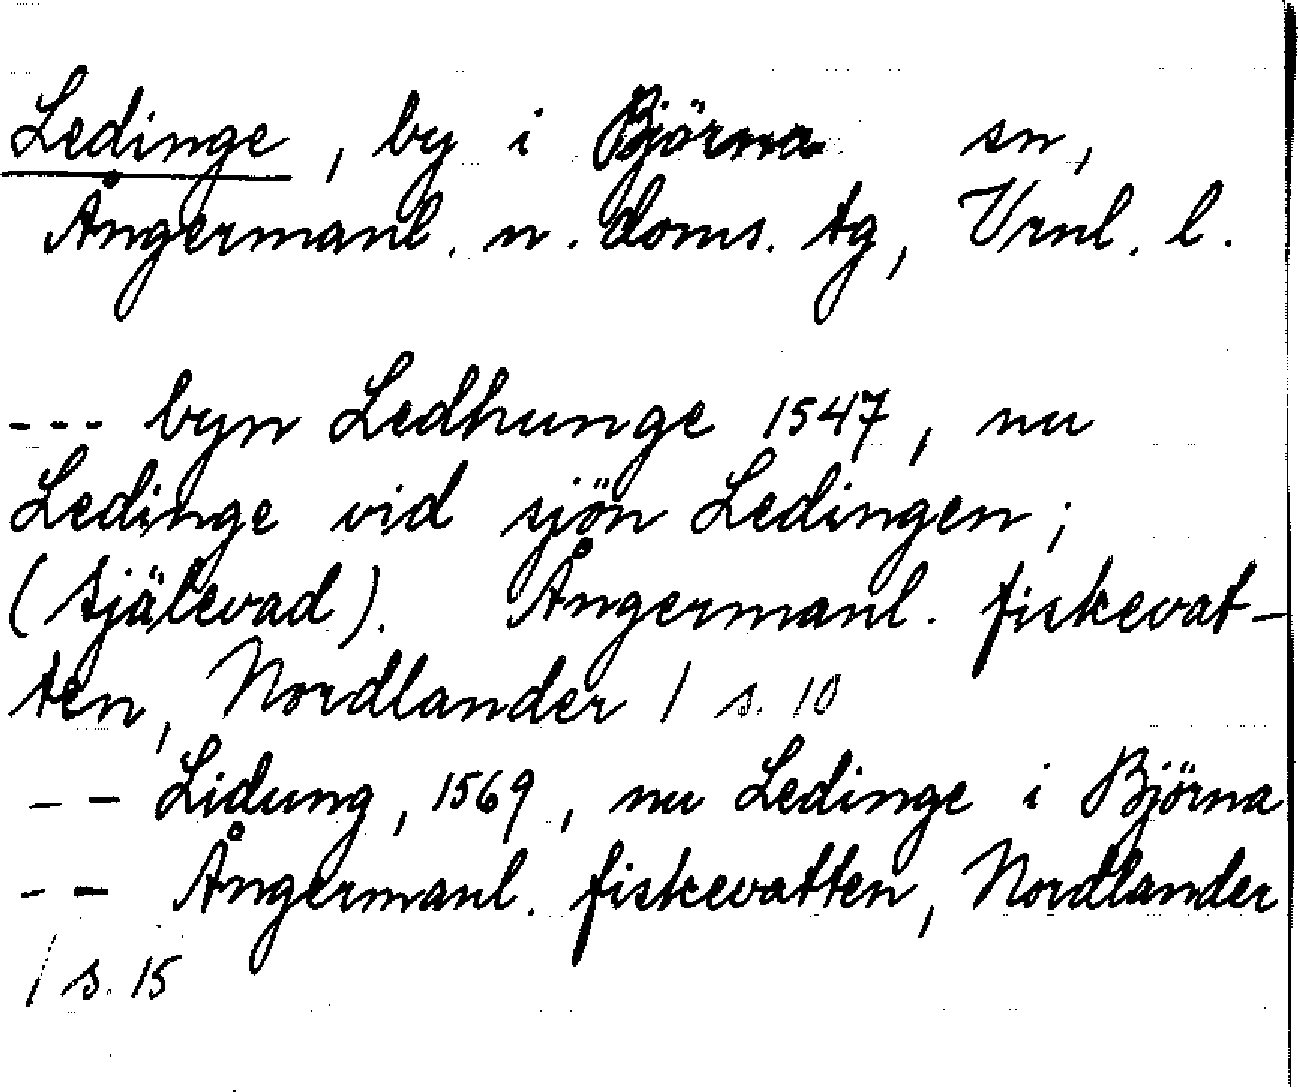 Ledinge, by i Björna sn,
Ångermanl. n. doms. tg, Vrnl. l.
--- byn Ledhunge 1547, nu
Ledinge vid sjön Ledingen;
(Själevad). Ångermanl. fiskevat-
ten, Nordlander / s. 10
-- Lidung, 1569, nu Ledinge i Björna
-- Ångermanl. fiskevatten, Nordlander
/ s. 15